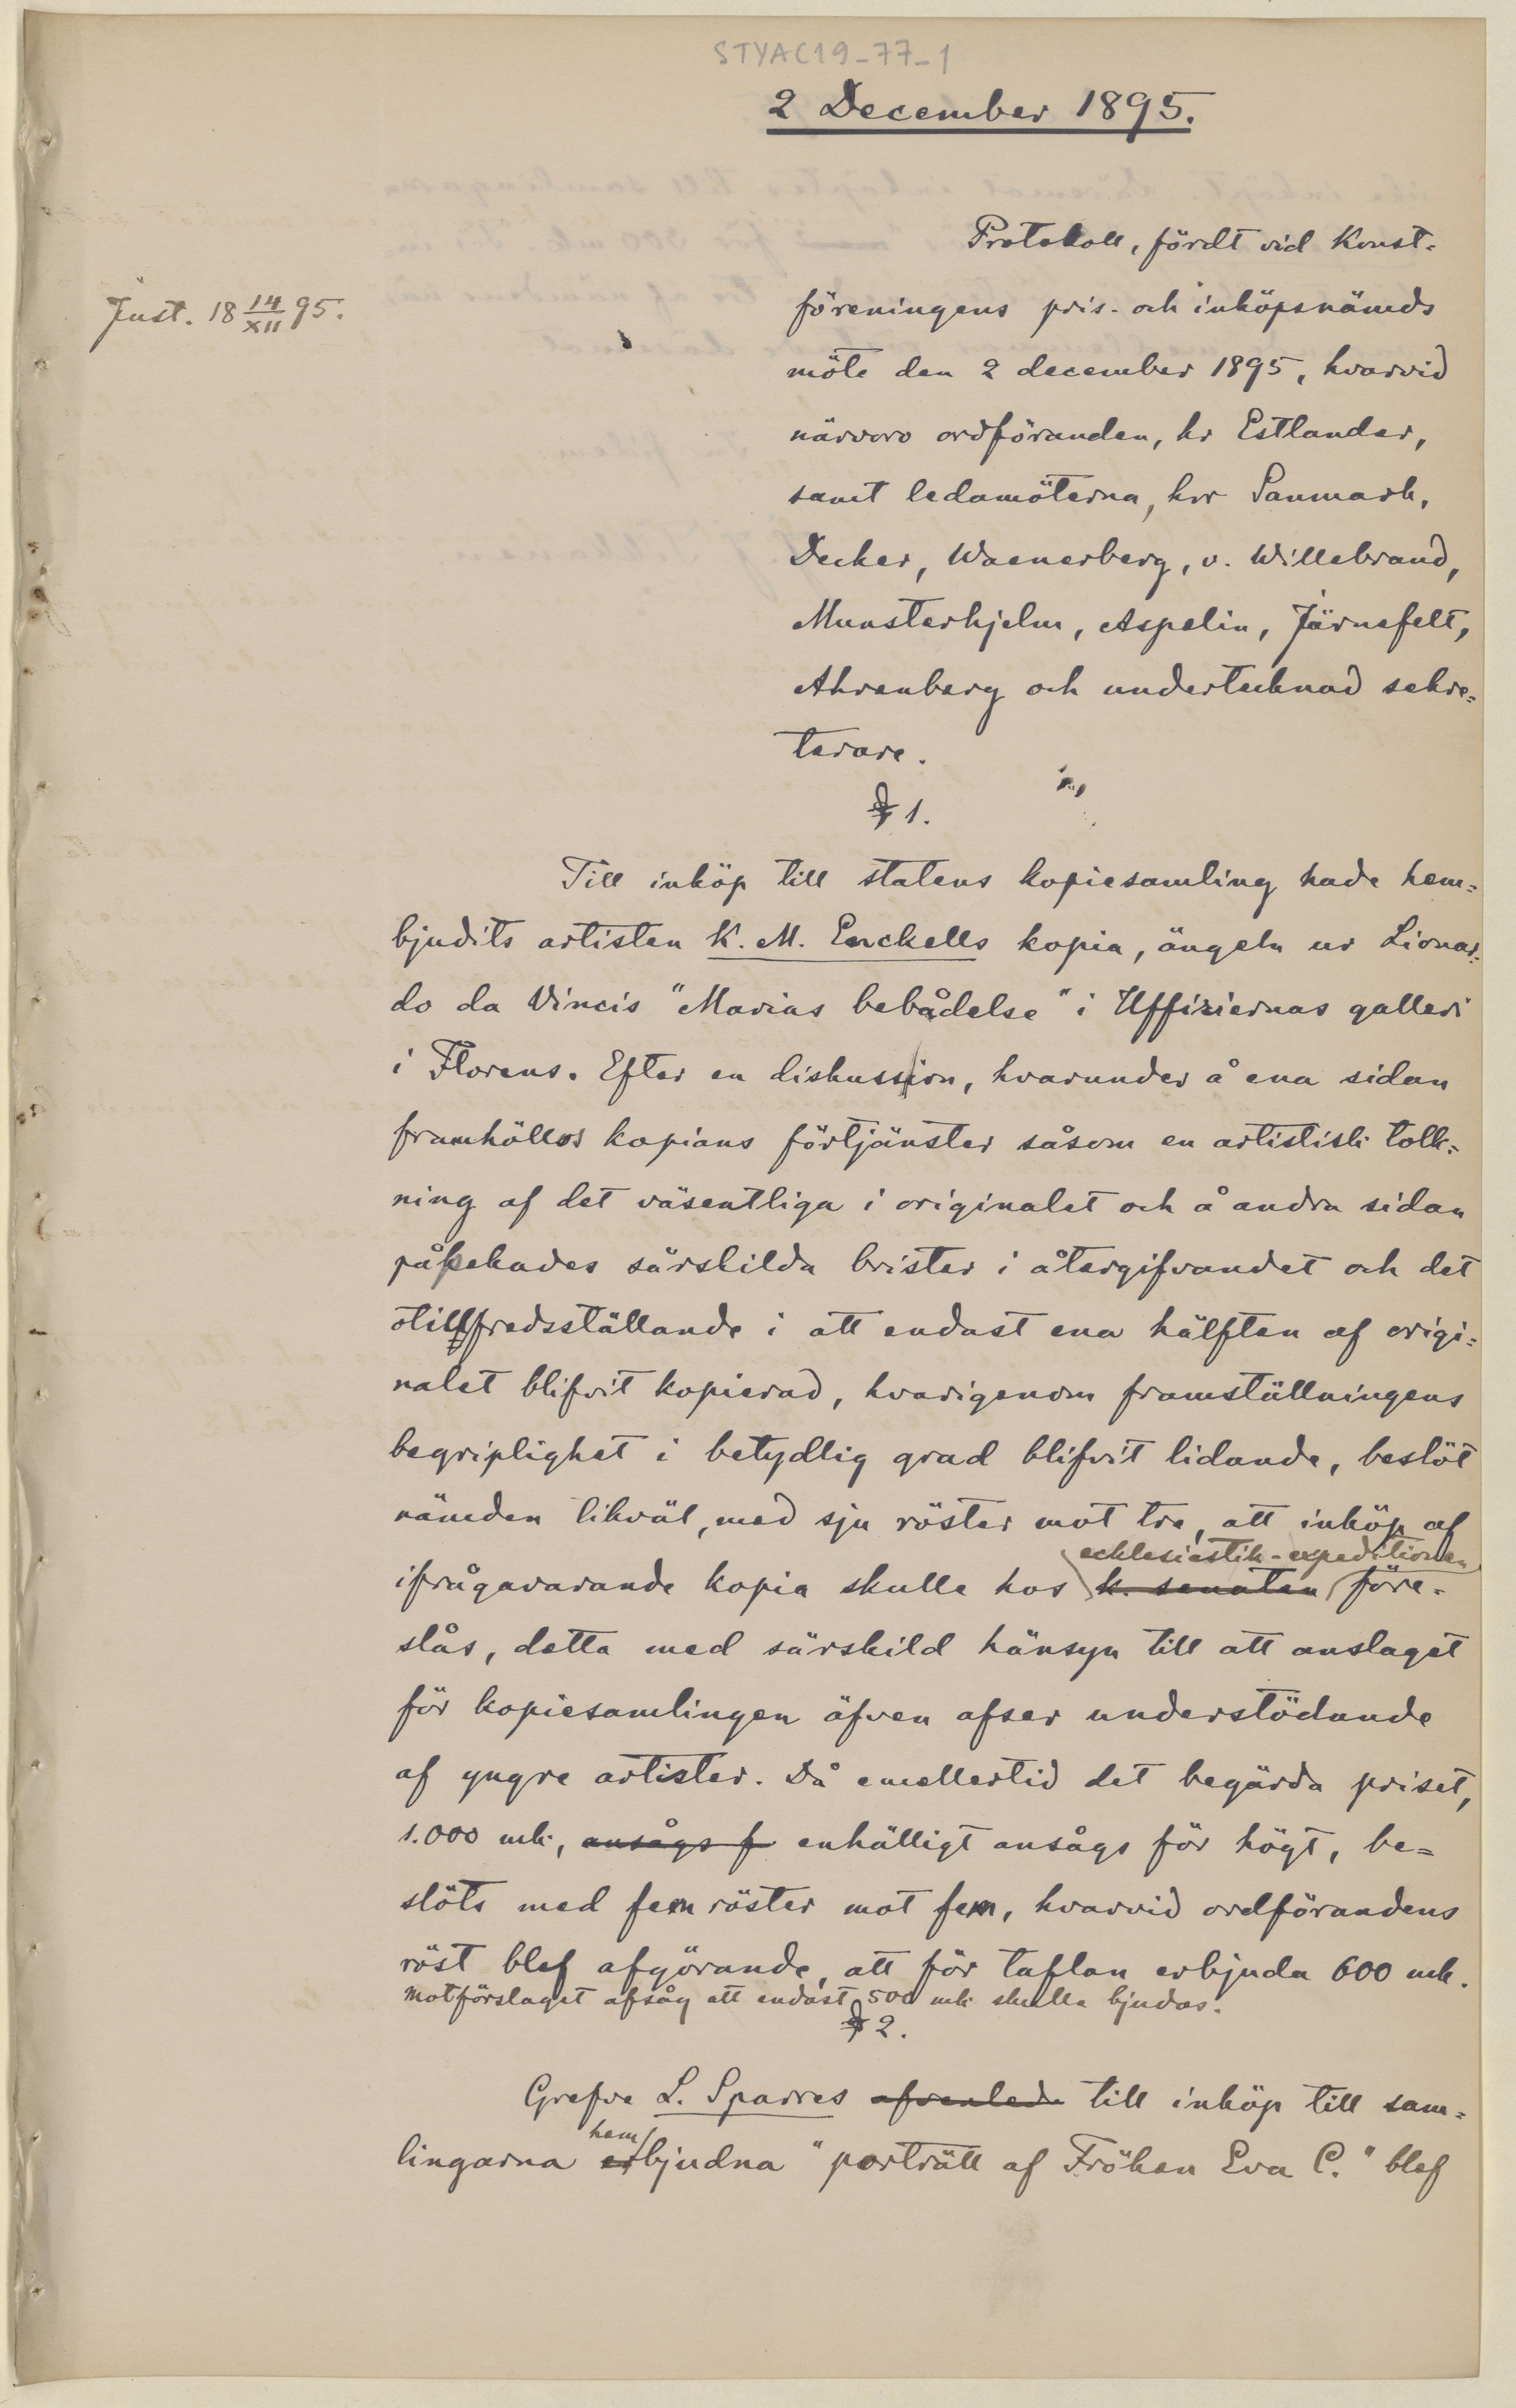 STYAC19-77-1
2 December 1895.
Just. 18 14/XII 95.
Protokoll, fördt vid Konst-
föreningens pris- och inköpsnämds
möte den 2 december 1895, hvarvid
närvoro ordföranden, hr Estlander,
samt ledamöterna, hrr Sanmark,
Decker, Waenerberg, v. Willebrand,
Munsterhjelm, Aspelin, Järnefelt,
Ahrenberg och undertecknad sekre-
terare.
§ 1.
Till inköp till statens kopiesamling hade hem-
bjudits artisten K. M. Enckells kopia, ängeln ur Lionar-
do da Vincis "Marias bebådelse" i Uffiziernas galleri
i Florens. Efter en diskussion, hvarunder å ena sidan
framhöllos kopians förtjänster såsom en artistisk tolk-
ning af det väsentliga i originalet och å andra sidan
påpekades särskilda brister i återgifvandet och det
otillfredsställande i att endast ena hälften af origi-
nalet blifvit kopierad, hvarigenom framställningens
begriplighet i betydlig grad blifvit lidande, beslöt
nämden likväl, med sju röster mot tre, att inköp af
ecklesiastik-expeditionen
ifrågavarande kopia skulle hos k. senaten före-
slås, detta med särskild hänsyn till att anslaget
för kopiesamlingen äfven afser understödande
af yngre artister. Då emellertid det begärda priset,
1.000 mk, ansågs f enhälligt ansågs för högt, be-
slöts med fem röster mot fem, hvarvid ordförandens
röst blef afgörande, att för taflan erbjuda 600 mk.
Motförslaget afsåg att endast 500 mk skulle bjudas.
§ 2.
Grefve L. Sparres till inköp till sam-
hem
lingarna erbjudna "porträtt af Fröken Eva C." blef